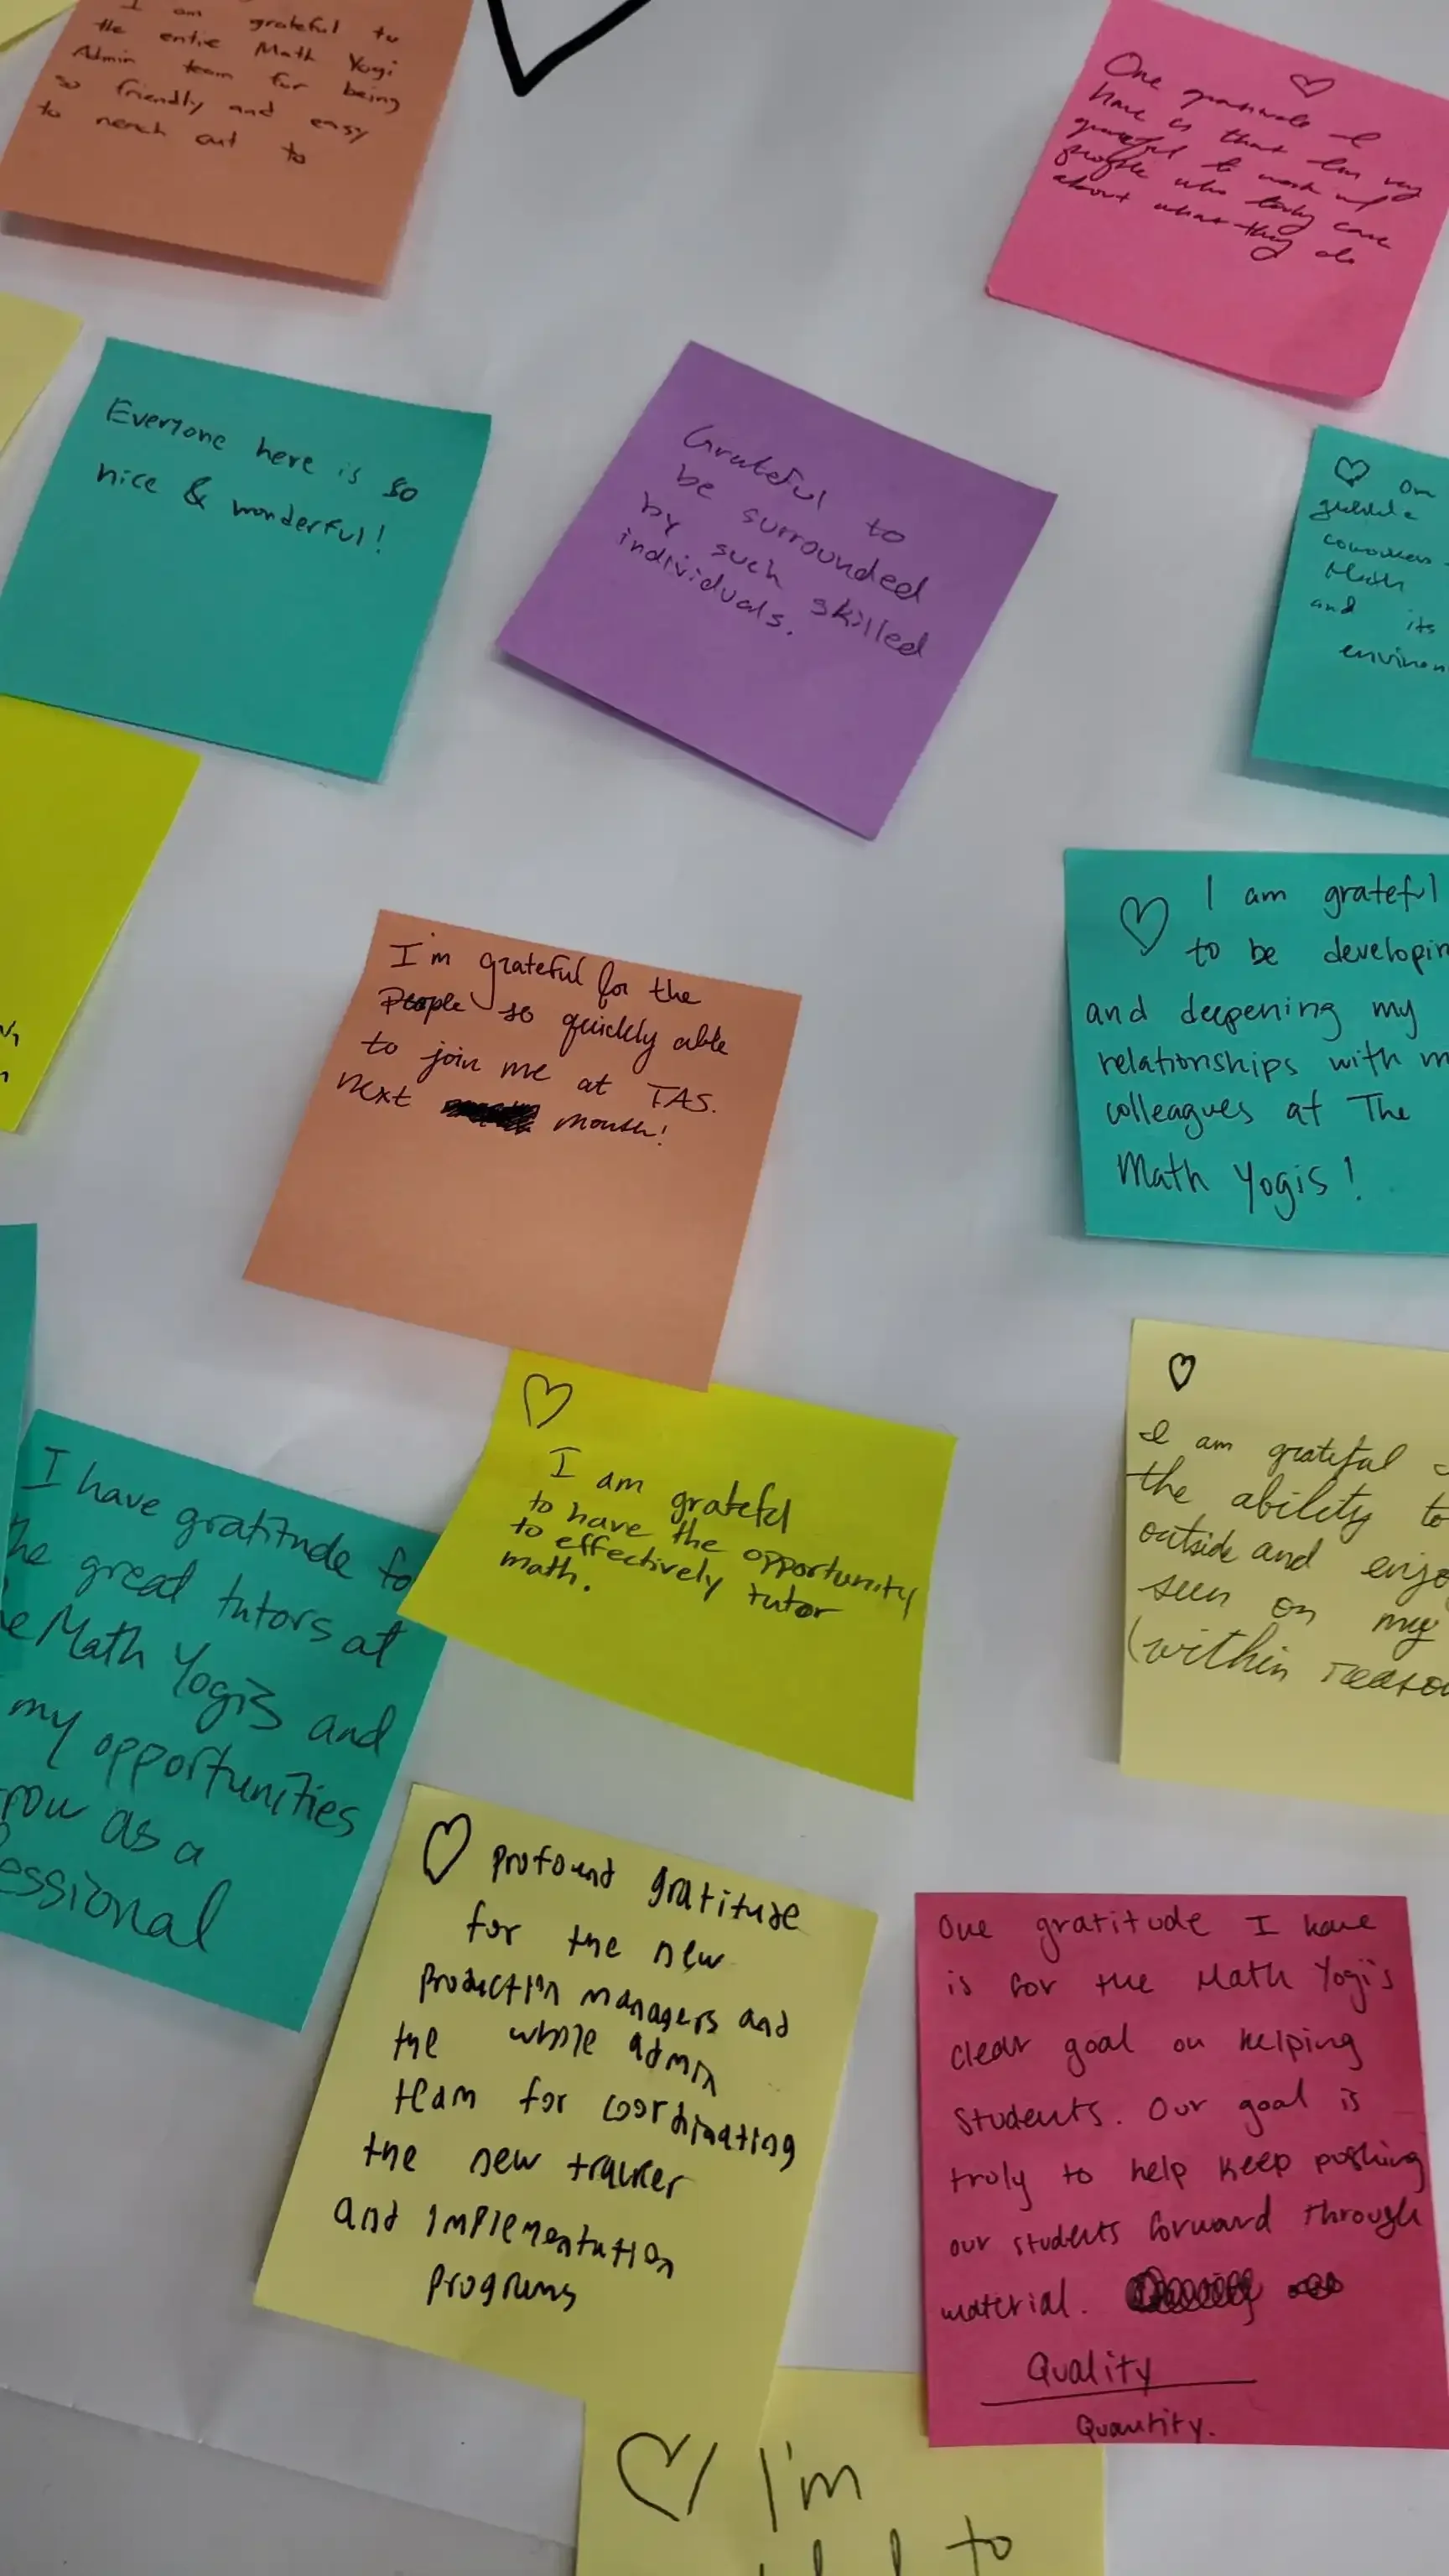 I am grateful to
the entire Math Yogi
Admin team for being
so friendly and easy
to reach out to
One gratitude I
have is that I am very
grateful to work w/
people who truly care
about what they do
Everyone here is so
nice & wonderful!
Grateful to
be surrounded
by such skilled
individuals.
On
coworkers
Math
and its
environ
I'm grateful for the
People so quickly able
to join me at TAS.
next month!
I am grateful
to be developin
and deepening my
relationships with m
colleagues at The
Math Yogis!
I am grateful
to have the opportunity
to effectively tutor
math.
I am grateful
the ability to
outside and enjo
seen on my
(within reaso
I have gratitude fo
he great tutors at
e Math Yogis and
my opportunities
row as a
essional
profound gratitude
for the new
production managers and
the whole admin
team for coordinating
the new tracker
and implementation
programs
One gratitude I have
is for the Math Yogi's
clear goal on helping
students. Our goal is
truly to help keep pushing
our students forward through
material.
Quality
Quantity.
I'm
to